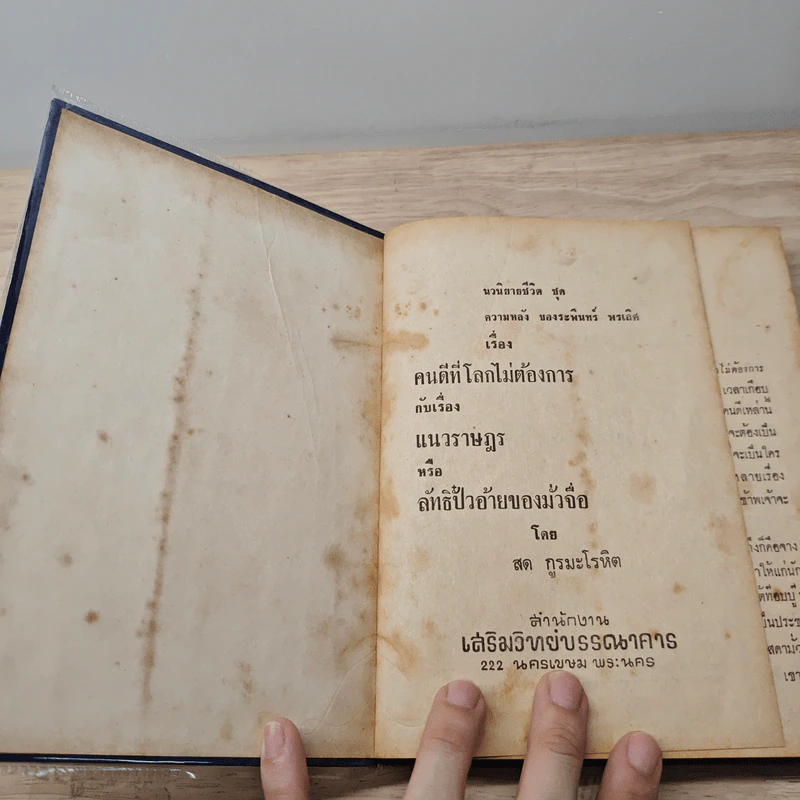 นวนิยายชีวิต ชุด
ความหลัง ของระพินทร์ พรเลิศ
เรื่อง
คนดีที่โลกไม่ต้องการ
กับเรื่อง
แนวราษฎร
หรือ
ลัทธิปั๋วอ้ายของมั้วจื่อ
โดย
สด กูรมะโรหิต
สำนักงาน
เสริมวิทย์บรรณาคาร
222 นครเขษม พระนคร
ไม่ต้องการ
เวลาเกือบ
คนดีเหล่านี้
จะต้องเป็น
จะเป็นใคร
ลายเรื่อง
ข้าพเจ้าจะ
ก็คือจาง
ให้แก่นัก